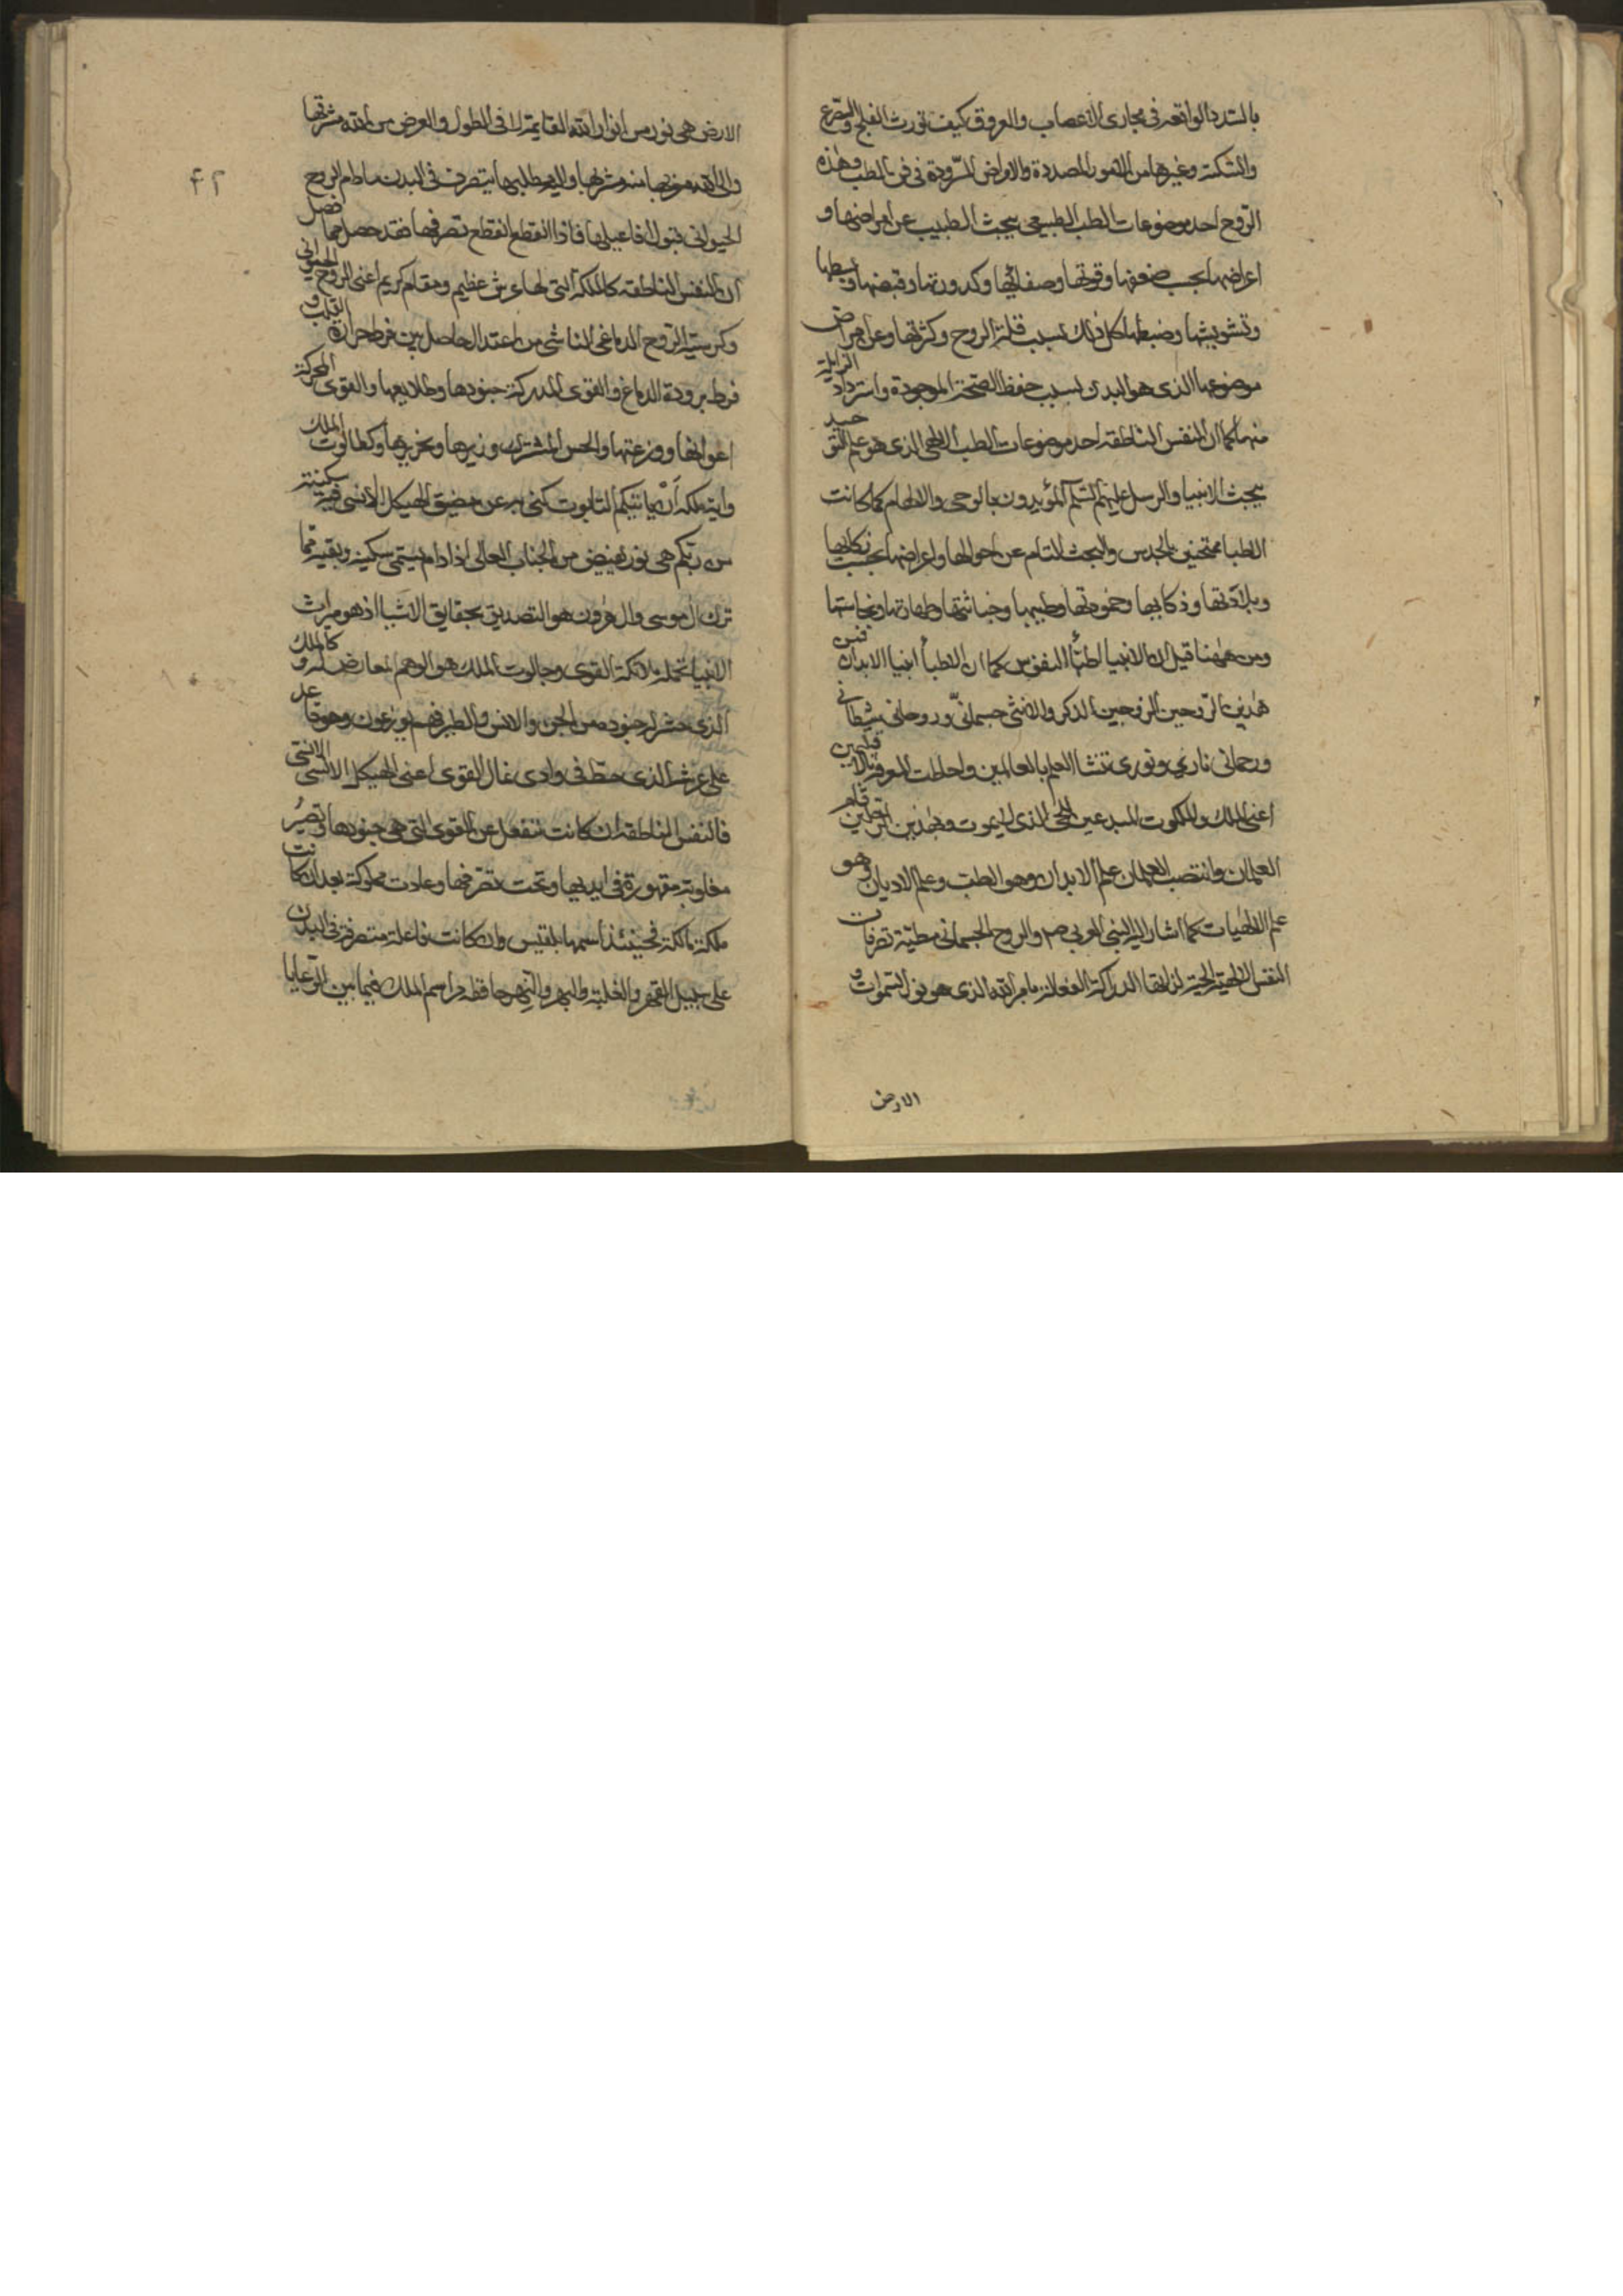 بالسدد الواقعة فى مجارى الاعصاب والعروق كيف تورث الفلج والصرع
والسكتة وغيرها من الامور المصددة والامراض المسرودة فى فن الطب وهذه
الروح احد موضوعات الطب الطبيعى يبحث الطبيب عن امراضها و
اعراضها بحسب ضعفها وقوتها وصفائها وكدورتها وقبضها وبسطها
وتشويشها وضبطها كل ذلك بسبب قلة الروح وكثرتها وعن امراض
موضوعها الذى هو البدن بسبب حفظ الصحة الموجودة واسترداد الزايلة
منها كما ان النفس الناطقة احد موضوعات الطب الالهى الذى هو علم التوحيد
يبحث الانبيا والرسل عليهم السلم المؤيدون بالوحى والالهام كما كانت
الاطبا ممتحنين بالحدس والبحث التام عن احوالها واعراضها بحسب زكايها
وبلادتها وذكايها وحموقتها وطيبها وخباثتها وطهارتها ونجاستها
ومن ههنا قيل ان الانبيا اطبّأ النفوس كما ان الاطبأ انبيا الابدان فمن
هذين الروحين الزوجين الذكر والانثى جسمانىّ وروحانى شيطانى
ورحمانى نارى ونورى تنشا العلم بالعالمين واحاطت المعرفة بالاقليمين
اعنى الملك والملكوت المبدعين للحى الذى لا يموت وبهذين الثقلين قام
العالمان وانتصب العلمان علم الابدان وهو الطب وعلم الاديان وهو
علم الالهيات كما اشار اليه النبى العربى صم والروح الجسمانى مطيّة تصرفات
النفس الالهية الحية لذاتها الدراكة الفعالة بامر الله الذى هو نور السموات و
الارض
۴۲
الارض هى نور من انوار الله القايمة لا فى الطول والعرض من الله مشرقها
والى الله مغربها منه مشربها واليه مطلبها يتصرف فى البدن ما دام الروح
الحيوانى قبول افاعيلها فاذا انقطع انقطع تصرفها فقد حصل مما فصل
ان النفس الناطقة كالملكة التى لها عرش عظيم ومقام كريم اعنى الروح الحيوانى
وكرسيه الروح الدماغى الناشى من اعتدال حاصل بين فرط حرارة القلب و
فرط برودة الدماغ والقوى المدركة جنودها وطلايعها والقوى المحركة
اعوانها ووزعتها والحس المشترك وزيرها وكطالوت الملك
وآية ملكه أن ياتيكم التابوت كنى به عن مضيق الهيكل الانسى فيه سكينة
من ربكم هى نور يفيض من الجناب العالى اذا دام يسمى سكينة وبقية مما
ترك ال موسى وال هرون هو التصديق بحقايق الاشيا اذ هو ميراث
الانبيا تحمله ملائكة القوى وجالوت الملك هو الوهم المعارض له و كالملك
الذى حشر له جنوده من الجن والانس والطير فهم يوزعون وهو قاعد
على عرشه الذى حط فى وادى نمال القوى اعنى الهيكل الانسى
فالنفس الناطقة ان كانت تنفعل عن القوى التى هى جنودها وتصيرُ
مغلوبة مقهورة فى ايديها وتحت تصرفها وعادت مملوكة بعد ان كانت
ملكة مالكة فحينئذ اسمها بلقيس وان كانت فاعلة متصرفة فى البدن
على سبيل القهر والغلبة والنهر حافظة مراسم الملك فيما بين الرعايا